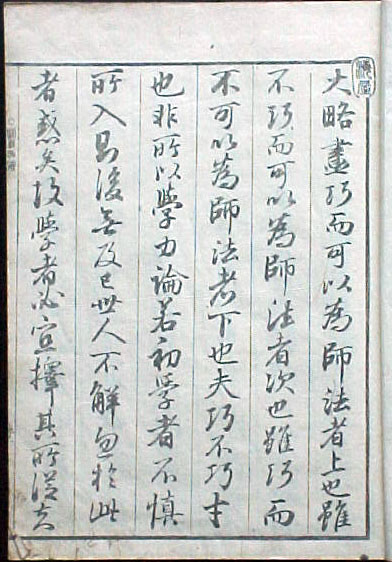 大略盡巧而可以為師法者上也雖
不巧而可以為師法者次也雖巧而
不可以為師法者下也夫巧不巧才
也非所以學力論若初學者不慎
所入後無及已世人不解忽於此
者惑矣故學者必宜擇其所從